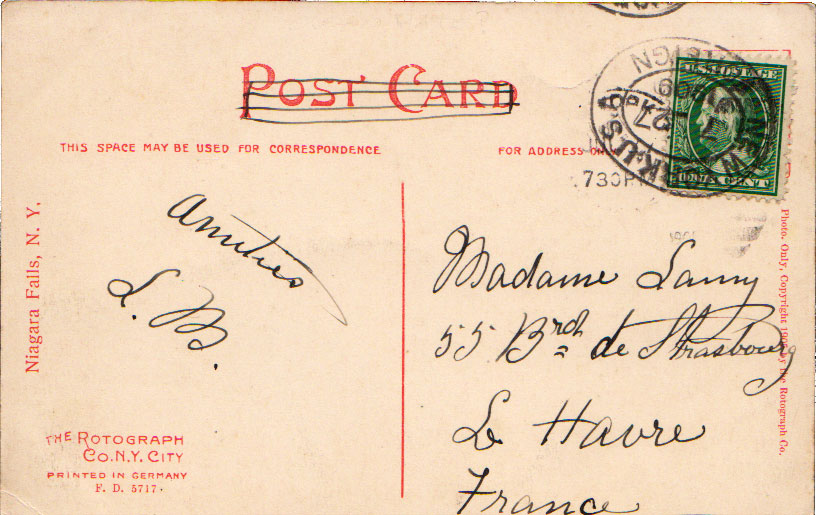 POST CARD
THIS SPACE MAY BE USED FOR CORRESPONDENCE
FOR ADDRESS
730 P
Niagara Falls, N. Y.
Amitiés
L. B.
Madame Lamy
55 Brd de Strasbourg
Le Havre
France
Photo. Only, Copyright by the Rotograph Co.
THE ROTOGRAPH
CO. N.Y. CITY
PRINTED IN GERMANY
F. D. 5717.
U.S. POSTAGE
NEW